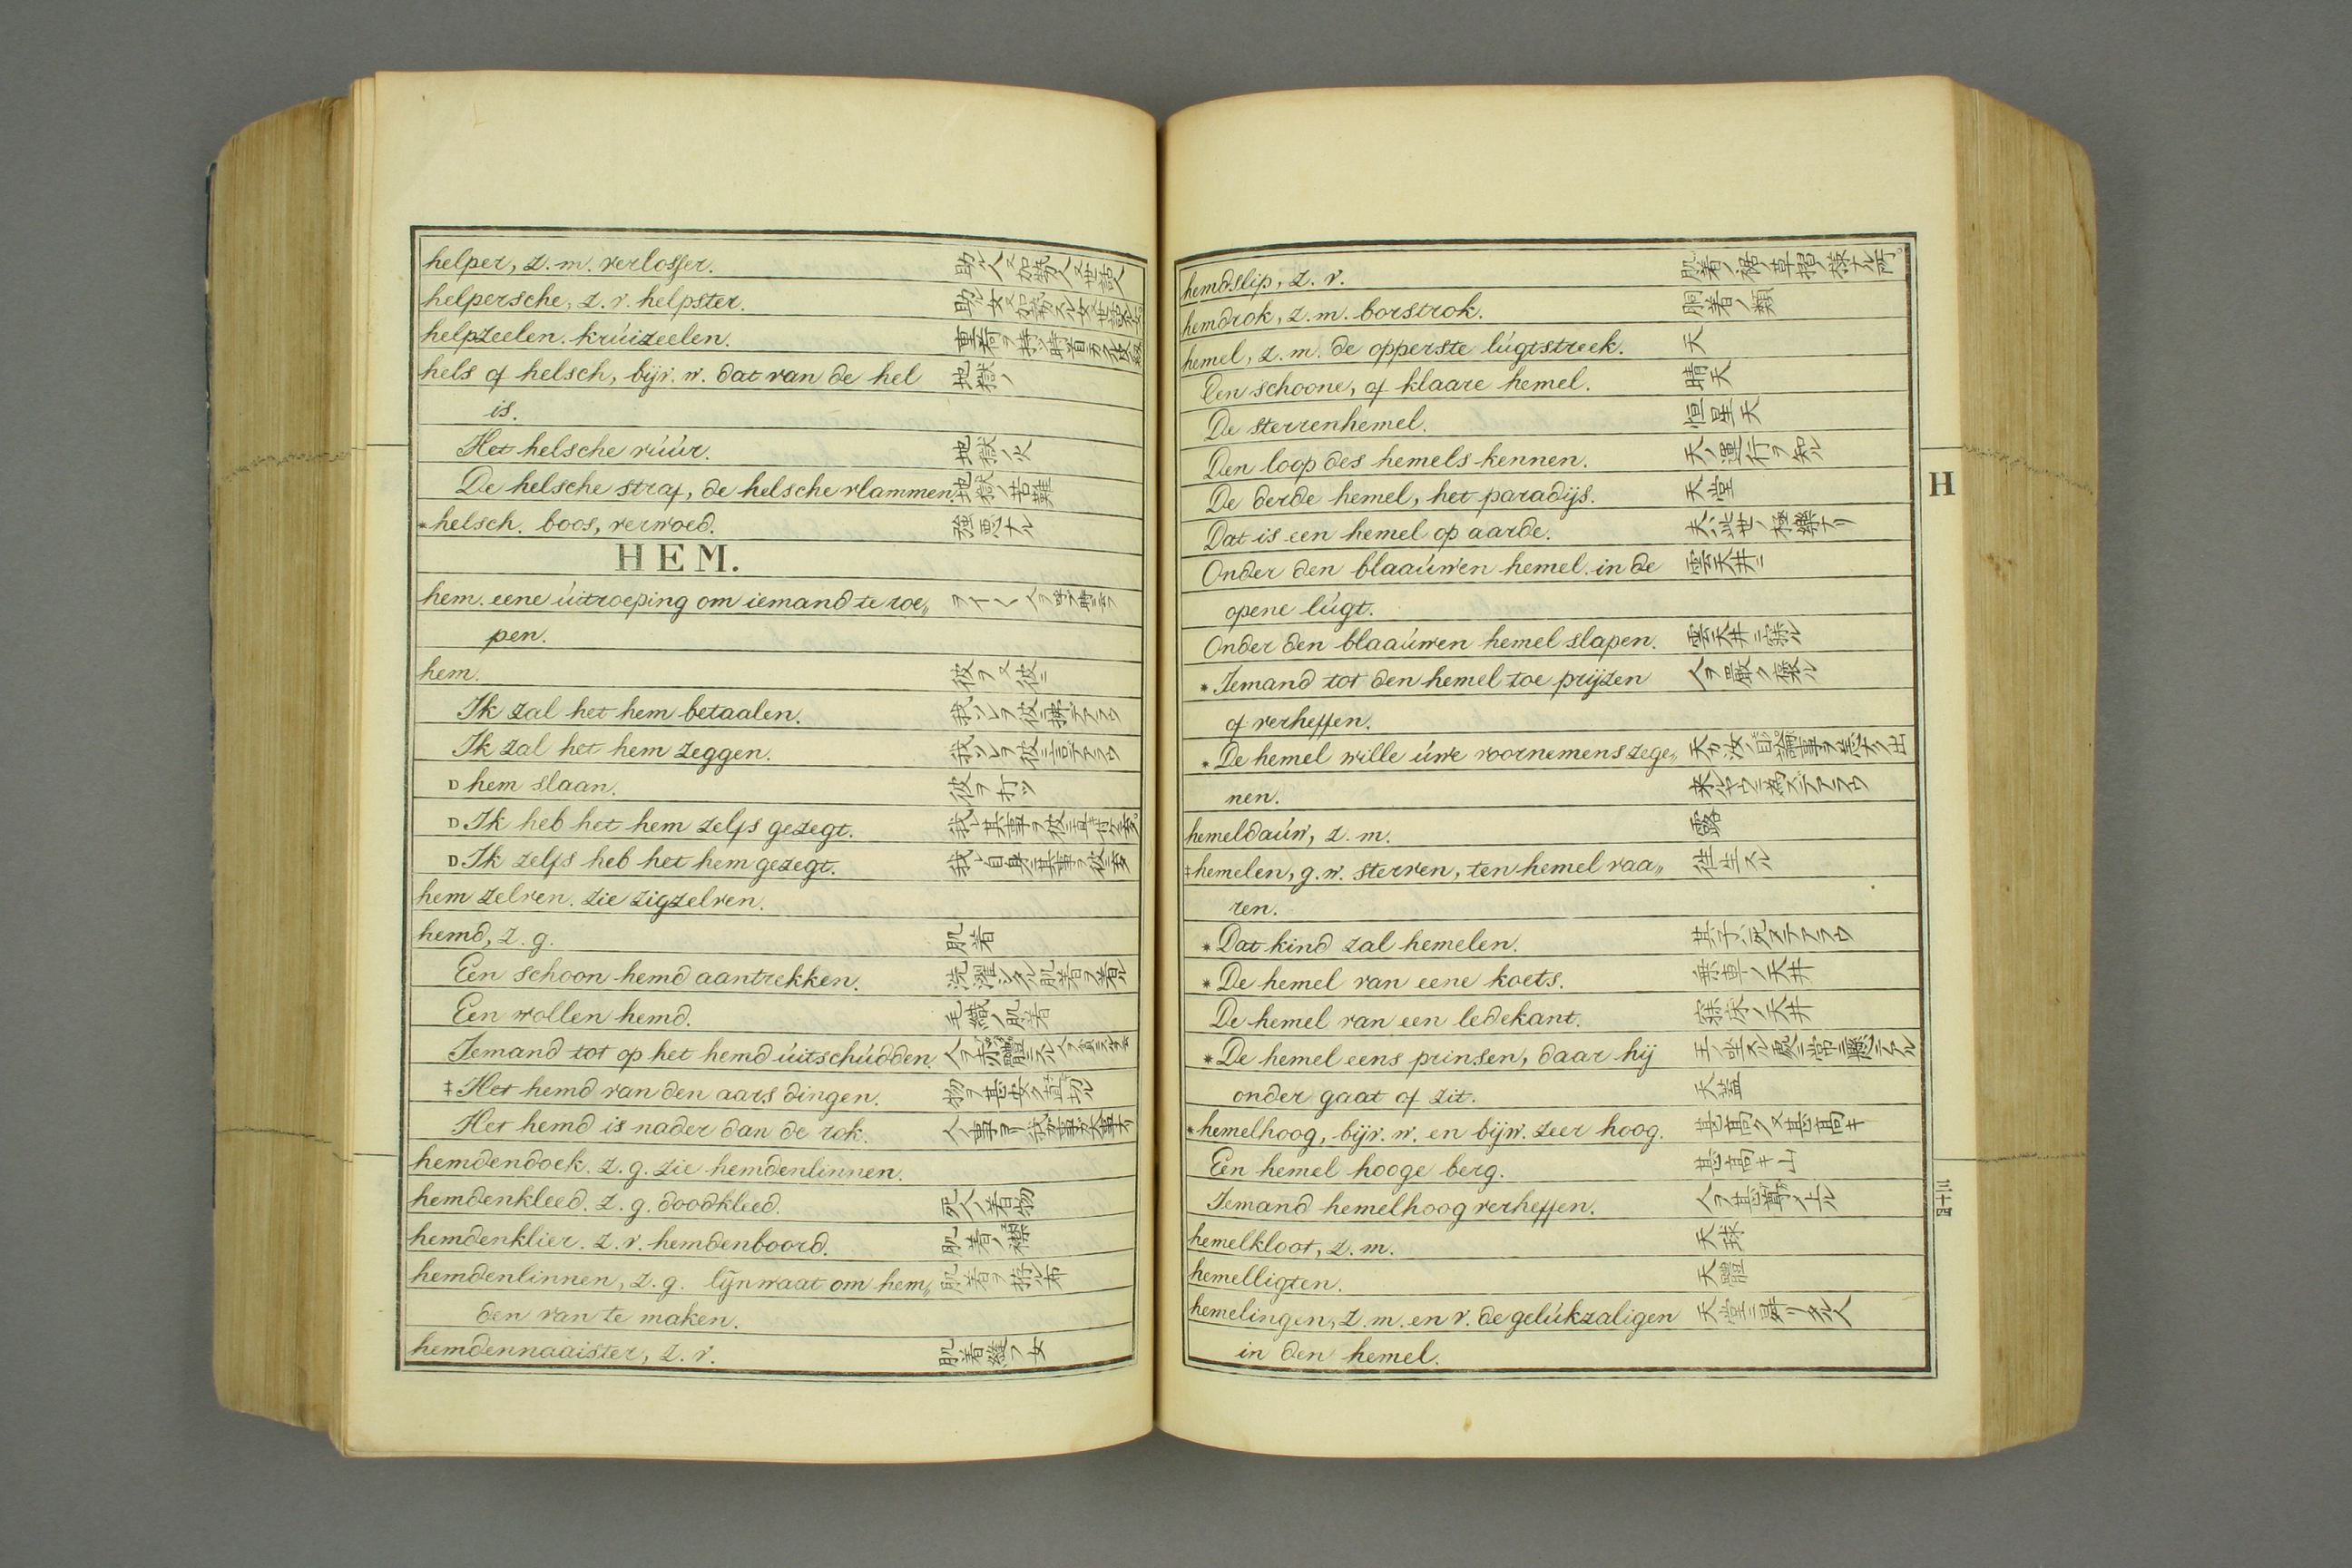 helper, z. m. verlosser.
helpersche, z. v. helpster.
helpzeelen. krúizeelen.
hels of helsch, bijv. w. dat van de hel 地獄ノ
is.
Het helsche vúúr. 地獄ノ火
De helsche straf, de helsche vlammen. 地獄ノ苦難
*helsch. boos, verwoed. 強悪ナル
HEM.
hem. eene úitroeping om iemand te roe„
pen.
hem. 彼ヲ又彼ニ
Ik zal het hem betaalen.
Ik zal het hem zeggen.
D hem slaan. 彼ヲ打ツ
D Ik heb het hem zelfs gezegt.
D Ik zelfs heb het hem gezegt.
hem zelven. zie zigzelven.
hemd, z. g. 肌着
Een schoon hemd aantrekken. 洗濯シタル肌着ヲ着ル
Een wollen hemd. 毛織ノ肌着
Iemand tot op het hemd úitschúdden.
‡ Het hemd van den aars dingen.
Het hemd is nader dan de rok.
hemdendoek. z. g. zie hemdenlinnen.
hemdenkleed. z. g. doodkleed. 死人ノ着物
hemdenklier. z. v. hemdenboord. 肌着ノ襟
hemdenlinnen, z. g. lijnwaat om hem„
den van te maken.
hemdennaaister, z. v. 肌着縫フ女
hemdslip, z. v.
hemdrok, z. m. borstrok. 胴着ノ類
hemel, z. m. de opperste lúgtstreek. 天
Een schoone, of klaare hemel. 晴天
De sterrenhemel. 恒星天
Den loop des hemels kennen. 天ノ運行ヲ知ル
De derde hemel, het paradijs. 天堂
Dat is een hemel op aarde. 夫ハ此世ノ極樂ナリ
Onder den blaaúwen hemel. in de 雲天井ニ
opene lúgt.
Onder den blaaúwen hemel slapen. 雲天井ニ寐ル
* Iemand tot den hemel toe prijzen
of verheffen.
* De hemel wille úwe voornemens zege„
nen.
hemeldaúw, z. m. 露
‡hemelen, g. w. sterven, ten hemel vaa„ 往生スル
ren.
* Dat kind zal hemelen. 其子ハ死スデアラウ
* De hemel van eene koets. 乗車ノ天井
De hemel van een ledekant. 寐床ノ天井
* De hemel eens prinsen, daar hij
onder gaat of zit. 天蓋
*hemelhoog, bijv. w. en bijw. zeer hoog. 甚高ク又甚高キ
Een hemel hooge berg. 甚高キ山
Iemand hemelhoog verheffen.
hemelkloot, z. m. 天球
hemelligten. 天體
hemelingen, z. m. en v. de gelúkzaligen 天堂ニ昇リタル人
in den hemel.
H
三十四